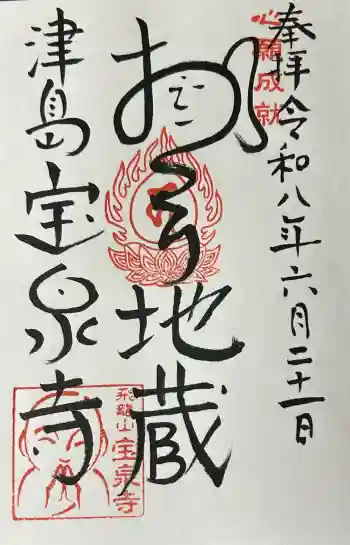 奉拝 令和八年六月二十一日
心願成就
地蔵
津島 宝泉寺
飛龍山
宝泉寺